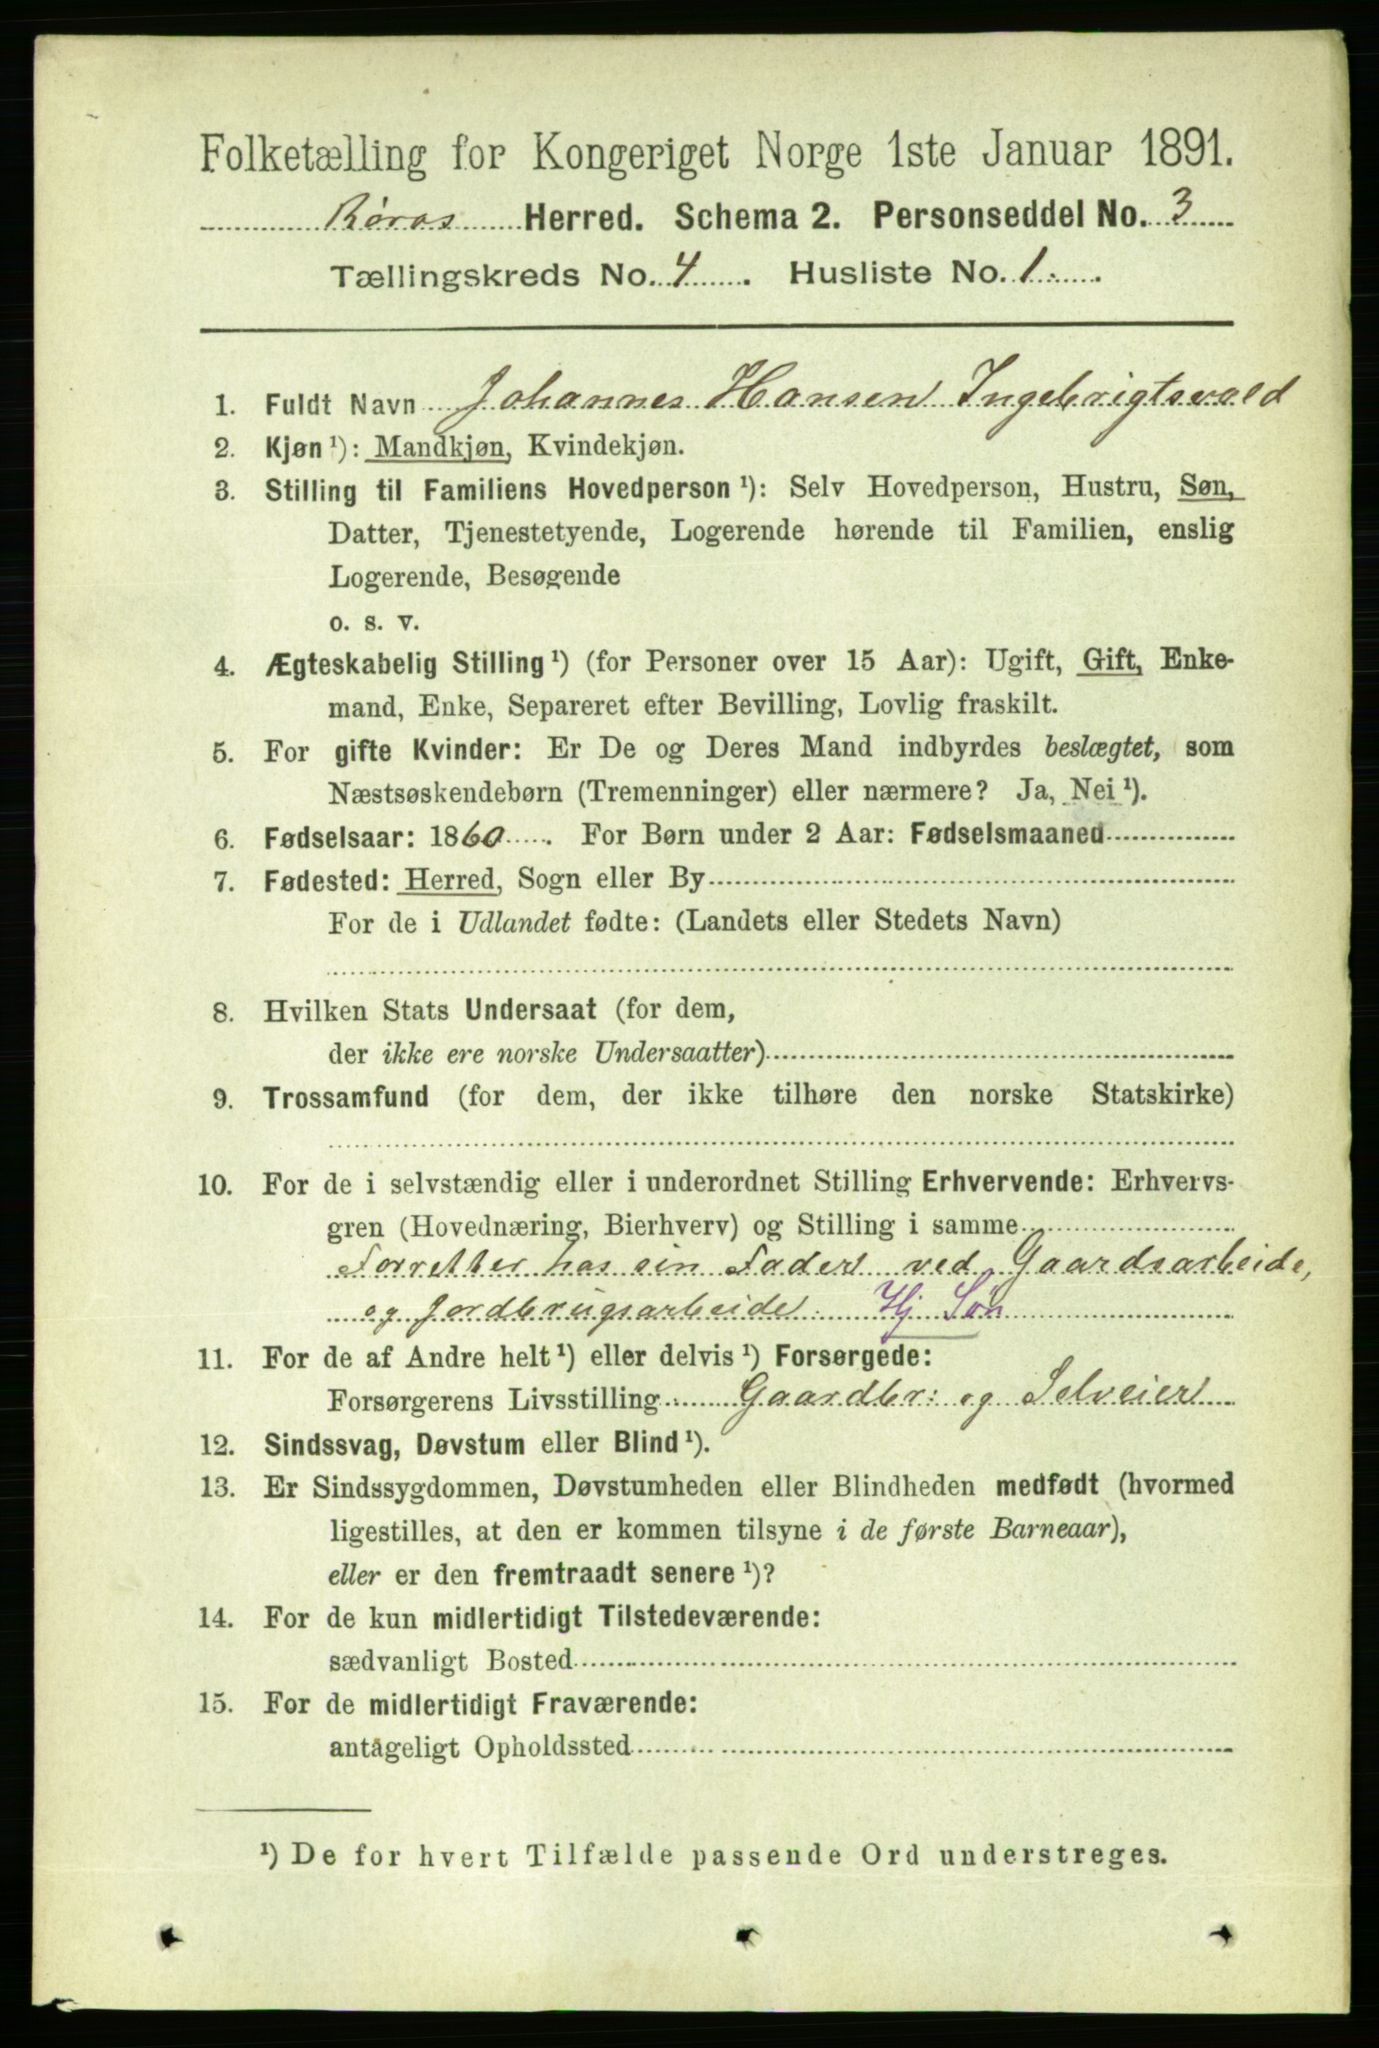 Folketælling for Kongeriget Norge 1ste Januar 1891.
Røros Herred. Schema 2. Personseddel No. 3
Tællingskreds No. 4. Husliste No. 1.
1. Fuldt Navn Johannes Hansen Ingebrigtsvold
2. Kjøn¹): Mandkjøn, Kvindekjøn.
3. Stilling til Familiens Hovedperson¹): Selv Hovedperson, Hustru, Søn,
Datter, Tjenestetyende, Logerende hørende til Familien, enslig
Logerende, Besøgende
o. s. v.
4. Ægteskabelig Stilling¹) (for Personer over 15 Aar): Ugift, Gift, Enke-
mand, Enke, Separeret efter Bevilling, Lovlig fraskilt.
5. For gifte Kvinder: Er De og Deres Mand indbyrdes beslægtet, som
Næstsøskendebørn (Tremenninger) eller nærmere? Ja, Nei¹).
6. Fødselsaar: 1860. For Børn under 2 Aar: Fødselsmaaned
7. Fødested: Herred, Sogn eller By
For de i Udlandet fødte: (Landets eller Stedets Navn)
8. Hvilken Stats Undersaat (for dem,
der ikke ere norske Undersaatter)
9. Trossamfund (for dem, der ikke tilhøre den norske Statskirke)
10. For de i selvstændig eller i underordnet Stilling Erhvervende: Erhvervs-
gren (Hovednæring, Bierhverv) og Stilling i samme
Forretter hos sin Fader ved Gaardsarbeide,
og Jordbrugsarbeide. Hj Søn
11. For de af Andre helt¹) eller delvis¹) Forsørgede:
Forsørgerens Livsstilling Gaardbr: og Selveier
12. Sindssvag, Døvstum eller Blind¹).
13. Er Sindssygdommen, Døvstumheden eller Blindheden medfødt (hvormed
ligestilles, at den er kommen tilsyne i de første Barneaar),
eller er den fremtraadt senere¹)?
14. For de kun midlertidigt Tilstedeværende:
sædvanligt Bosted
15. For de midlertidigt Fraværende:
antageligt Opholdssted
¹) De for hvert Tilfælde passende Ord understreges.